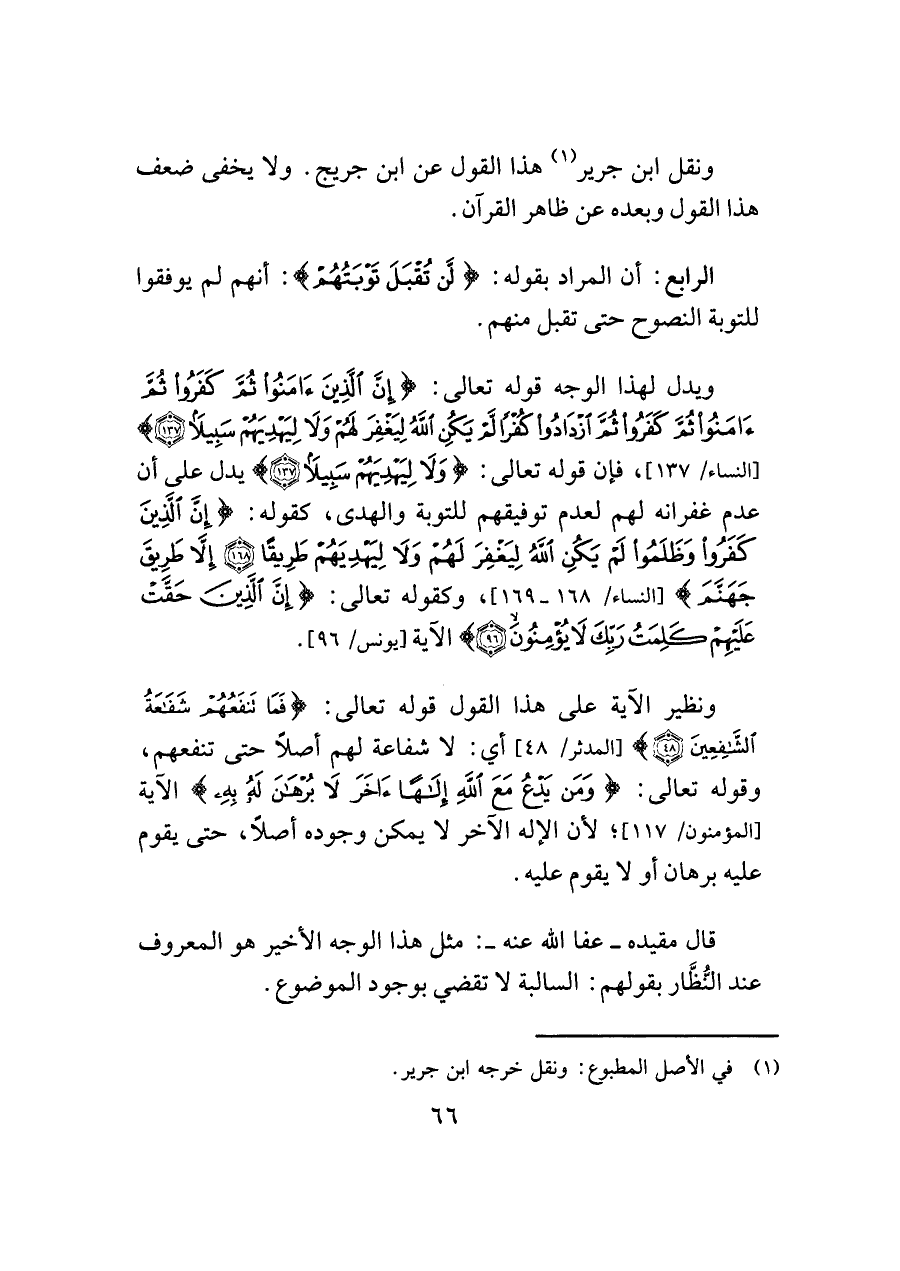 ونقل ابن جرير(١) هذا القول عن ابن جريج. ولا يخفى ضعف
هذا القول وبعده عن ظاهر القرآن.
الرابع: أن المراد بقوله: ﴿ لَّن تُقْبَلَ تَوْبَتُهُمْ ﴾: أنهم لم يوفقوا
للتوبة النصوح حتى تقبل منهم.
ويدل لهذا الوجه قوله تعالى: ﴿ إِنَّ ٱلَّذِينَ ءَامَنُوا۟ ثُمَّ كَفَرُوا۟ ثُمَّ
ءَامَنُوا۟ ثُمَّ كَفَرُوا۟ ثُمَّ ٱزْدَادُوا۟ كُفْرًا لَّمْ يَكُنِ ٱللَّهُ لِيَغْفِرَ لَهُمْ وَلَا لِيَهْدِيَهُمْ سَبِيلًۢا ١٣٧ ﴾
[النساء/ ١٣٧]، فإن قوله تعالى: ﴿ وَلَا لِيَهْدِيَهُمْ سَبِيلًۢا ١٣٧ ﴾ يدل على أن
عدم غفرانه لهم لعدم توفيقهم للتوبة والهدى، كقوله: ﴿ إِنَّ ٱلَّذِينَ
كَفَرُوا۟ وَظَلَمُوا۟ لَمْ يَكُنِ ٱللَّهُ لِيَغْفِرَ لَهُمْ وَلَا لِيَهْدِيَهُمْ طَرِيقًا ١٦٨ إِلَّا طَرِيقَ
جَهَنَّمَ ﴾ [النساء/ ١٦٨ ـ ١٦٩]، وكقوله تعالى: ﴿ إِنَّ ٱلَّذِينَ حَقَّتْ
عَلَيْهِمْ كَلِمَتُ رَبِّكَ لَا يُؤْمِنُونَ ٩٦ ﴾ الآية [يونس/ ٩٦].
ونظير الآية على هذا القول قوله تعالى: ﴿ فَمَا نَنفَعُهُمْ شَفَٰعَةُ
ٱلشَّٰفِعِينَ ٤٨ ﴾ [المدثر/ ٤٨] أي: لا شفاعة لهم أصلاً حتى تنفعهم،
وقوله تعالى: ﴿ وَمَن يَدْعُ مَعَ ٱللَّهِ إِلَٰهًا ءَاخَرَ لَا بُرْهَٰنَ لَهُۥ بِهِۦ ﴾ الآية
[المؤمنون/ ١١٧]؛ لأن الإله الآخر لا يمكن وجوده أصلاً، حتى يقوم
عليه برهان أو لا يقوم عليه.
قال مقيده ـ عفا الله عنه ـ: مثل هذا الوجه الأخير هو المعروف
عند النُّظَّار بقولهم: السالبة لا تقضي بوجود الموضوع.
(١) في الأصل المطبوع: ونقل خرجه ابن جرير.
٦٦